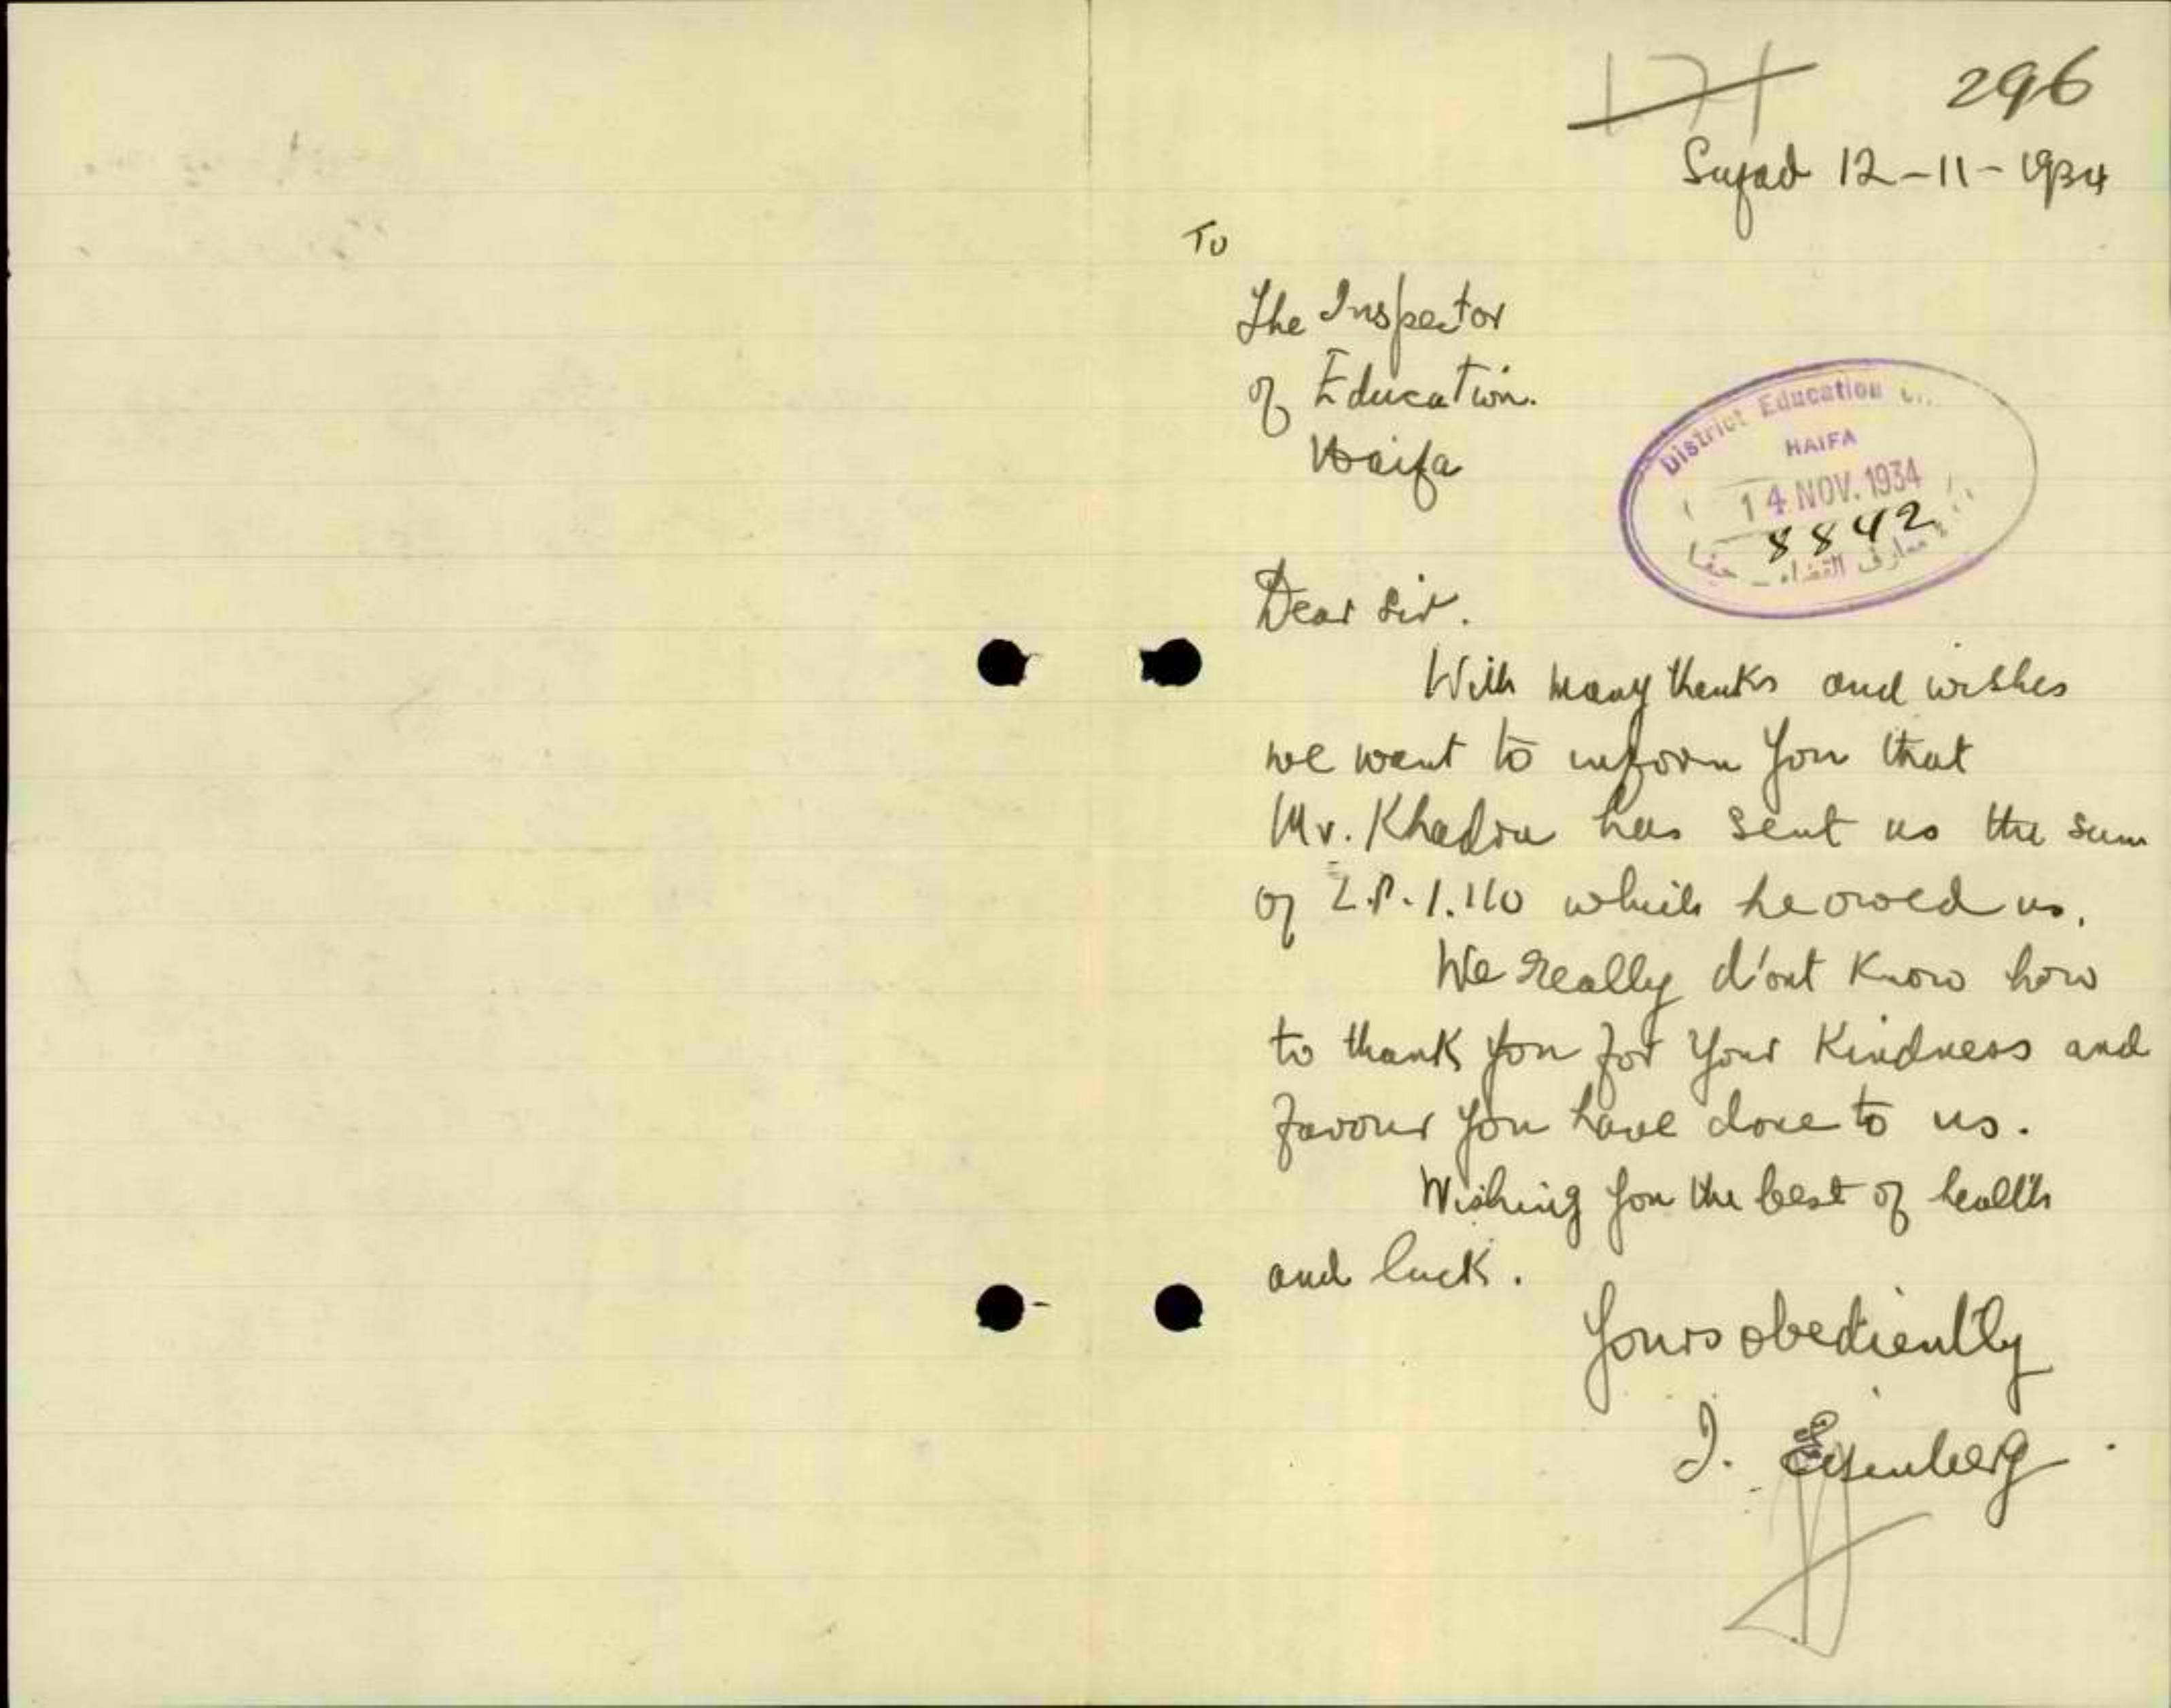 171 296
Safad 12-11-1934
To
The Inspector
of Education.
Haifa
District Education
HAIFA
14 NOV. 1934
8842
معارف القضاء - حيفا
Dear Sir.
With many thanks and wishes
we want to inform you that
Mr. Khadra has sent us the sum
of L.P. 1.110 which he owed us.
We really d'ont know how
to thank you for your kindness and
favour you have done to us.
Wishing you the best of health
and luck.
Yours obediently
J. Eisenberg.